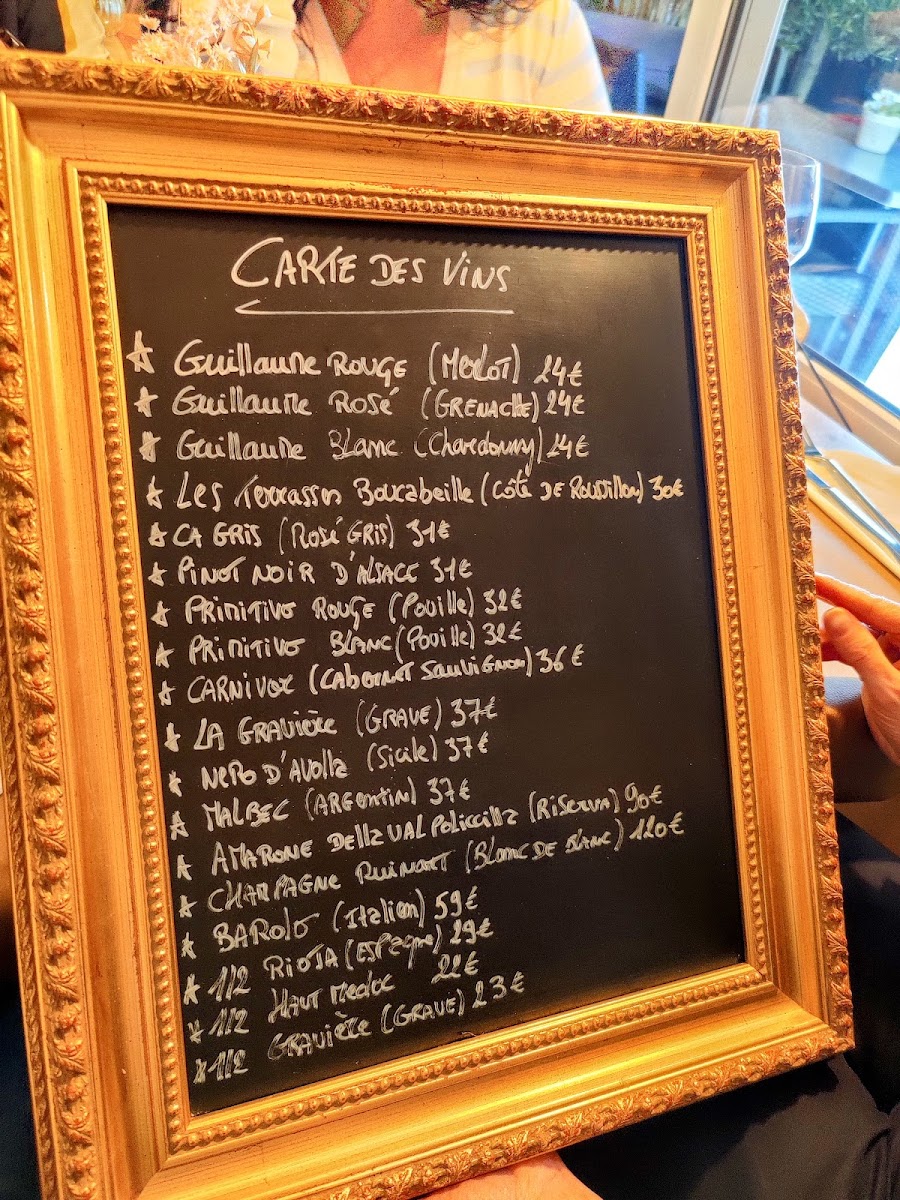 CARTE DES VINS
☆ Guillaume ROUGE (Merlot) 24€
☆ Guillaume Rosé (GRENACHE) 24€
☆ Guillaume Blanc (Chardonnay) 24€
☆ Les Terrasses Boucabeille (Côte DE ROUSSILLON) 30€
☆ CA GRIS (Rosé GRIS) 31€
☆ PINOT NOIR D'ALSACE 31€
☆ PRIMITIVO ROUGE (Pouille) 32€
☆ PRIMITIVO BLANC (Pouille) 32€
☆ CARNIVOR (CABERNET Sauvignon) 36€
☆ LA GRAVIÈRE (GRAVE) 37€
☆ NERO D'AVOLLA (Sicile) 37€
☆ MALBEC (ARGENTIN) 37€
☆ AMARONE Della VALPOLICCILLA (RISERVA) 90€
☆ CHAMPAGNE RUINART (BLANC DE BLANC) 120€
☆ BAROLO (Italien) 59€
☆ 1/2 RIOJA (ESPAGNE) 29€
☆ 1/2 HAUT MEDOC 22€
☆ 1/2 GRAVIÈRE (GRAVE) 23€